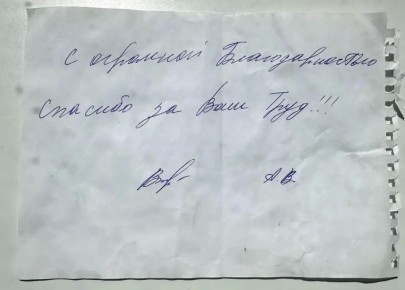 с огромной Благодарностью
спасибо за Ваш Труд!!!
А.В.